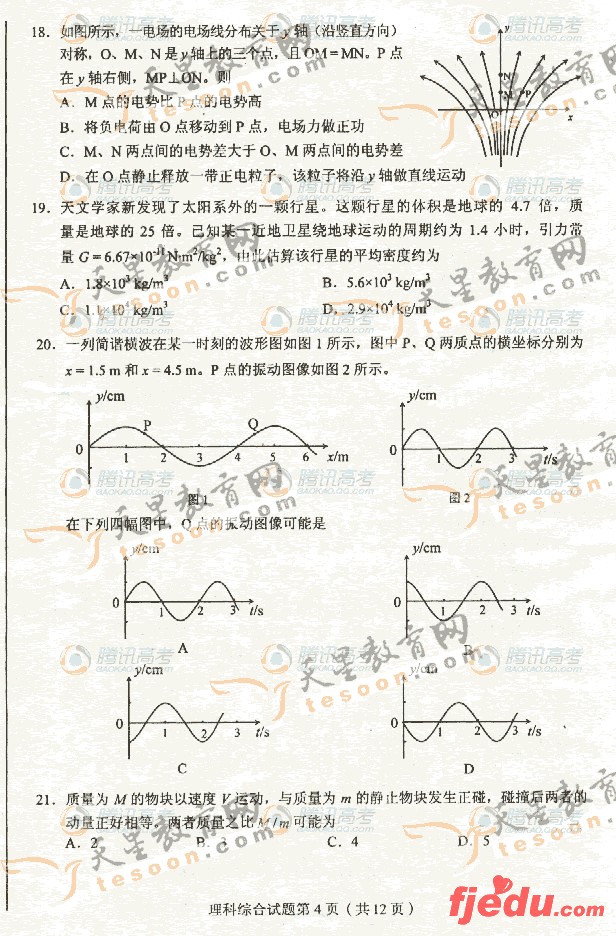 18. 如图所示，一电场的电场线分布关于 y 轴（沿竖直方向）
对称，O、M、N 是 y 轴上的三个点，且 OM=MN。P 点
在 y 轴右侧，MP⊥ON。则
A. M 点的电势比 P 点的电势高
B. 将负电荷由 O 点移动到 P 点，电场力做正功
C. M、N 两点间的电势差大于 O、M 两点间的电势差
D. 在 O 点静止释放一带正电粒子，该粒子将沿 y 轴做直线运动
y
N
M P
O
x
19. 天文学家新发现了太阳系外的一颗行星。这颗行星的体积是地球的 4.7 倍，质
量是地球的 25 倍。已知某一近地卫星绕地球运动的周期约为 1.4 小时，引力常
量 G=6.67×10⁻¹¹N·m²/kg²，由此估算该行星的平均密度约为
A. 1.8×10³ kg/m³ B. 5.6×10³ kg/m³
C. 1.1×10⁴ kg/m³ D. 2.9×10⁴ kg/m³
20. 一列简谐横波在某一时刻的波形图如图 1 所示，图中 P、Q 两质点的横坐标分别为
x = 1.5 m 和 x = 4.5 m。P 点的振动图像如图 2 所示。
y/cm y/cm
P Q
0 1 2 3 4 5 6 x/m 0 1 2 3 t/s
图1 图2
在下列四幅图中，Q 点的振动图像可能是
y/cm y/cm
0 1 2 3 t/s 0 1 2 3 t/s
A B
y/cm y/cm
0 1 2 3 t/s 0 1 2 3 t/s
C D
21. 质量为 M 的物块以速度 V 运动，与质量为 m 的静止物块发生正碰，碰撞后两者的
动量正好相等。两者质量之比 M/m 可能为
A. 2 B. 3 C. 4 D. 5
理科综合试题第 4 页（共 12 页）
fjedu.com
天星教育网
tesoon.com
腾讯高考
BAOKAO.QQ.COM